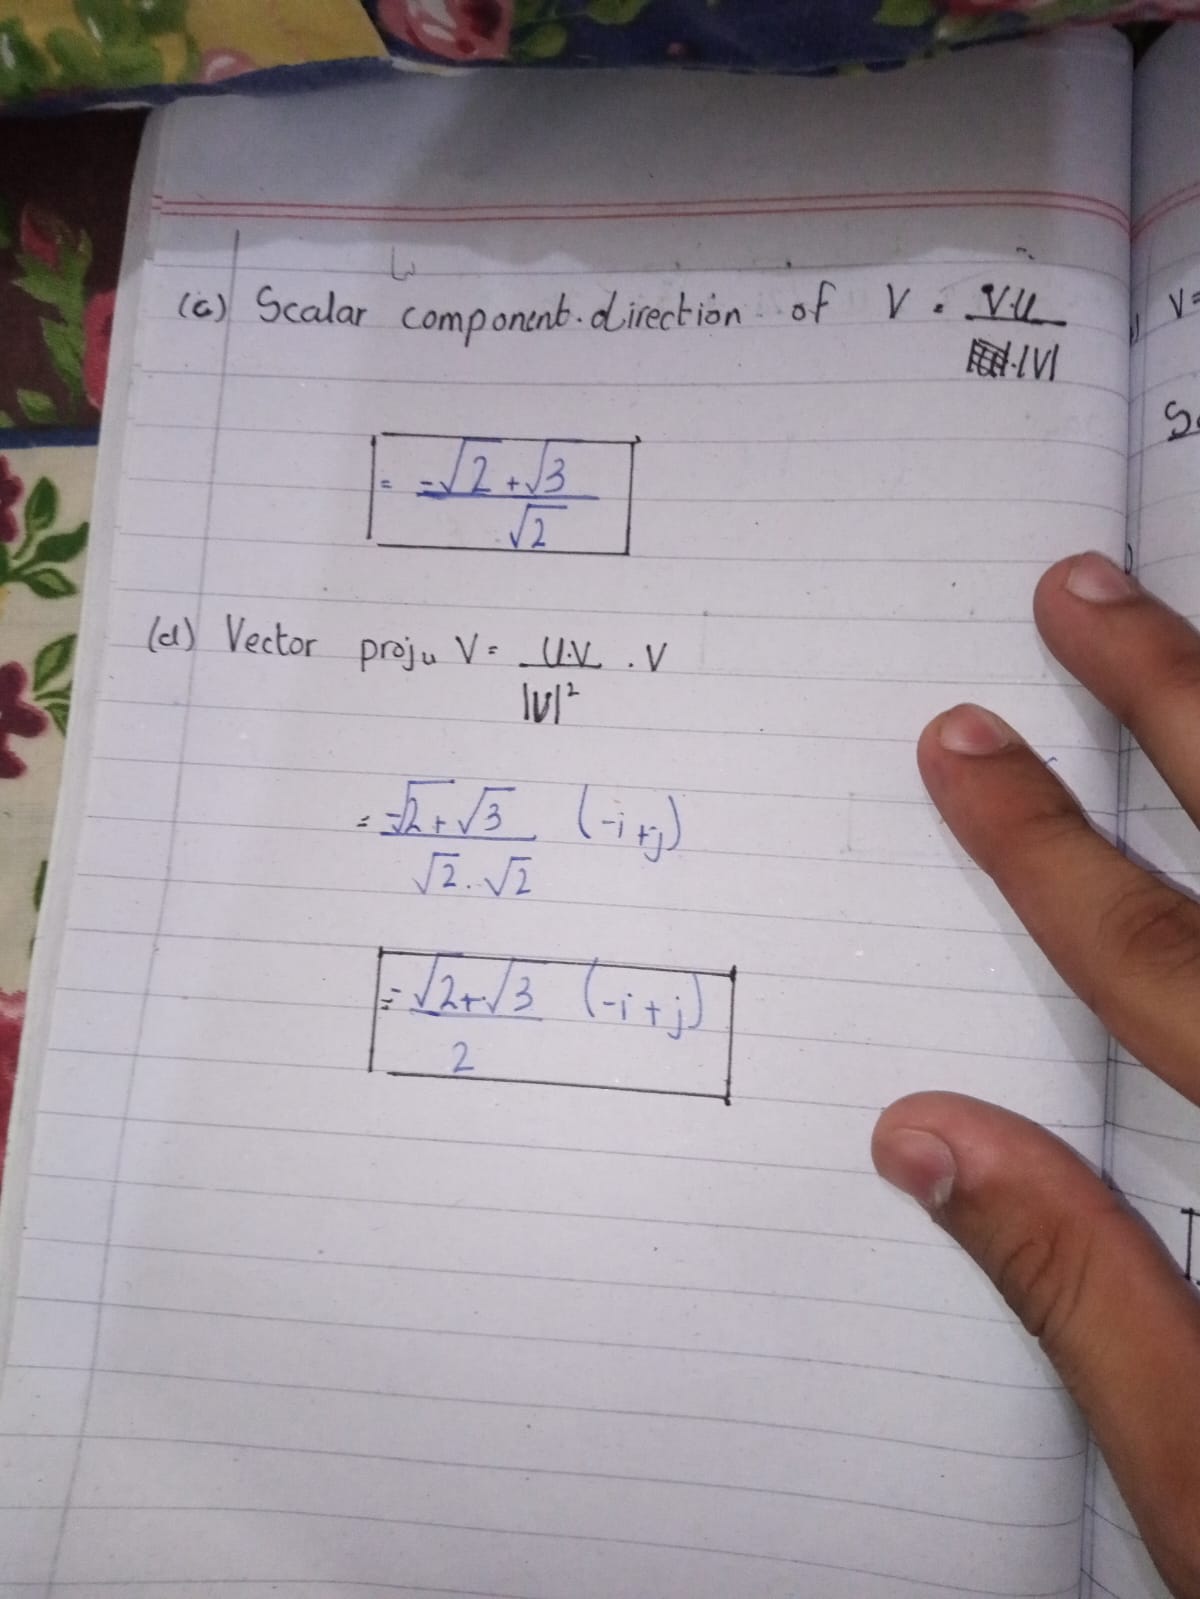 (c) Scalar component. direction of V = V·U
|V|
= -√2 + √3
√2
(d) Vector proju V = U.V . V
|U|²
= -√2 + √3 (-i + j)
√2 . √2
= -√2 + √3 (-i + j)
2
V=